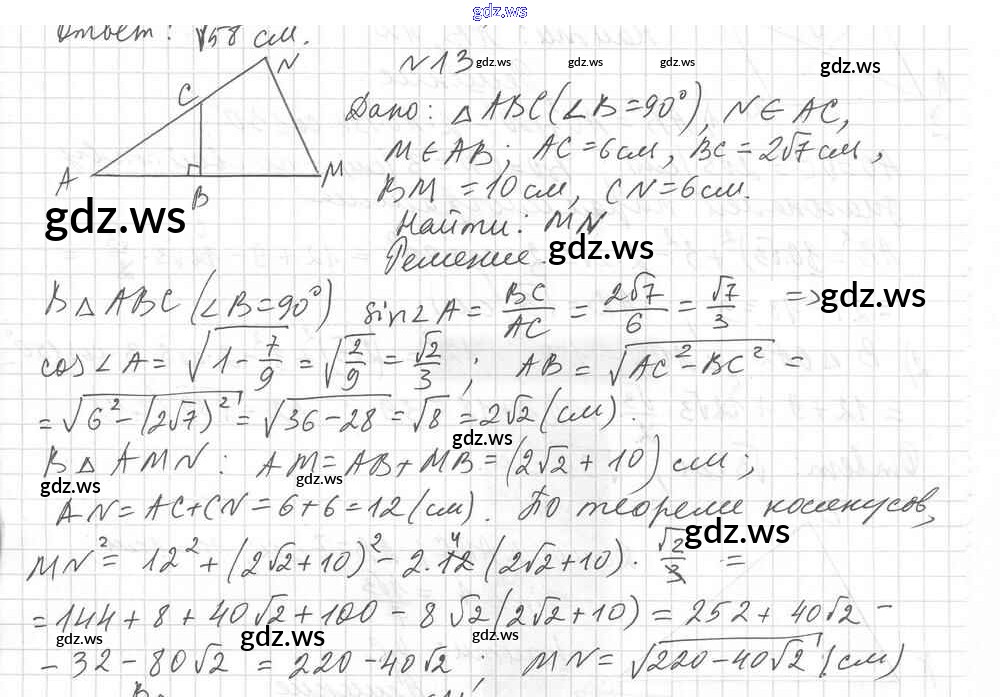 gdz.ws
Ответ: √58 см.
N13 gdz.ws gdz.ws gdz.ws gdz.ws
C N A B M
Дано: △ABC (∠B=90°), N∈AC,
M∈AB; AC=6см, BC=2√7 см,
BM=10см, CN=6см.
gdz.ws
Найти: MN
Решение. gdz.ws
В △ABC (∠B=90°) sin∠A = BC/AC = 2√7/6 = √7/3 => gdz.ws
cos∠A = √(1-7/9) = √(2/9) = √2/3; AB = √(AC²-BC²) =
= √(6²-(2√7)²) = √(36-28) = √8 = 2√2 (см).
gdz.ws
В △AMN: AM=AB+MB=(2√2+10) см;
gdz.ws gdz.ws
AN=AC+CN=6+6=12 (см). По теореме косинусов,
gdz.ws
MN² = 12²+(2√2+10)²-2·12 4 (2√2+10)·√2/3 =
=144+8+40√2+100-8√2(2√2+10)=252+40√2-
gdz.ws gdz.ws gdz.ws
-32-80√2=220-40√2; MN=√(220-40√2) (см)